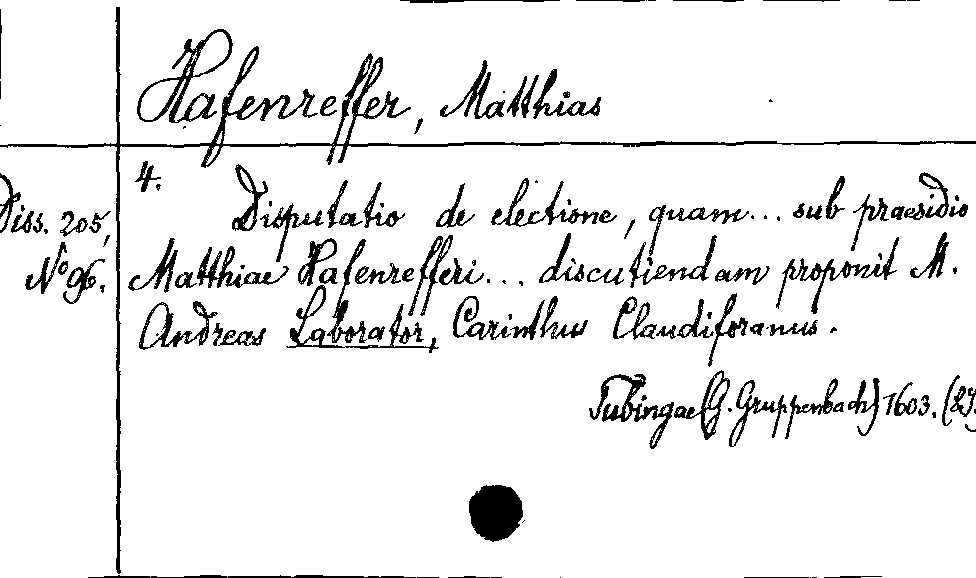 Hafenreffer, Matthias
4.
Diss. 205,
N° 96.
Disputatio de electione, quam... sub praesidio
Matthiae Hafenrefferi... discutiendam proponit M.
Andreas Laborator, Carinthus Claudiforanus.
Tubingae (G. Gruppenbach) 1603.